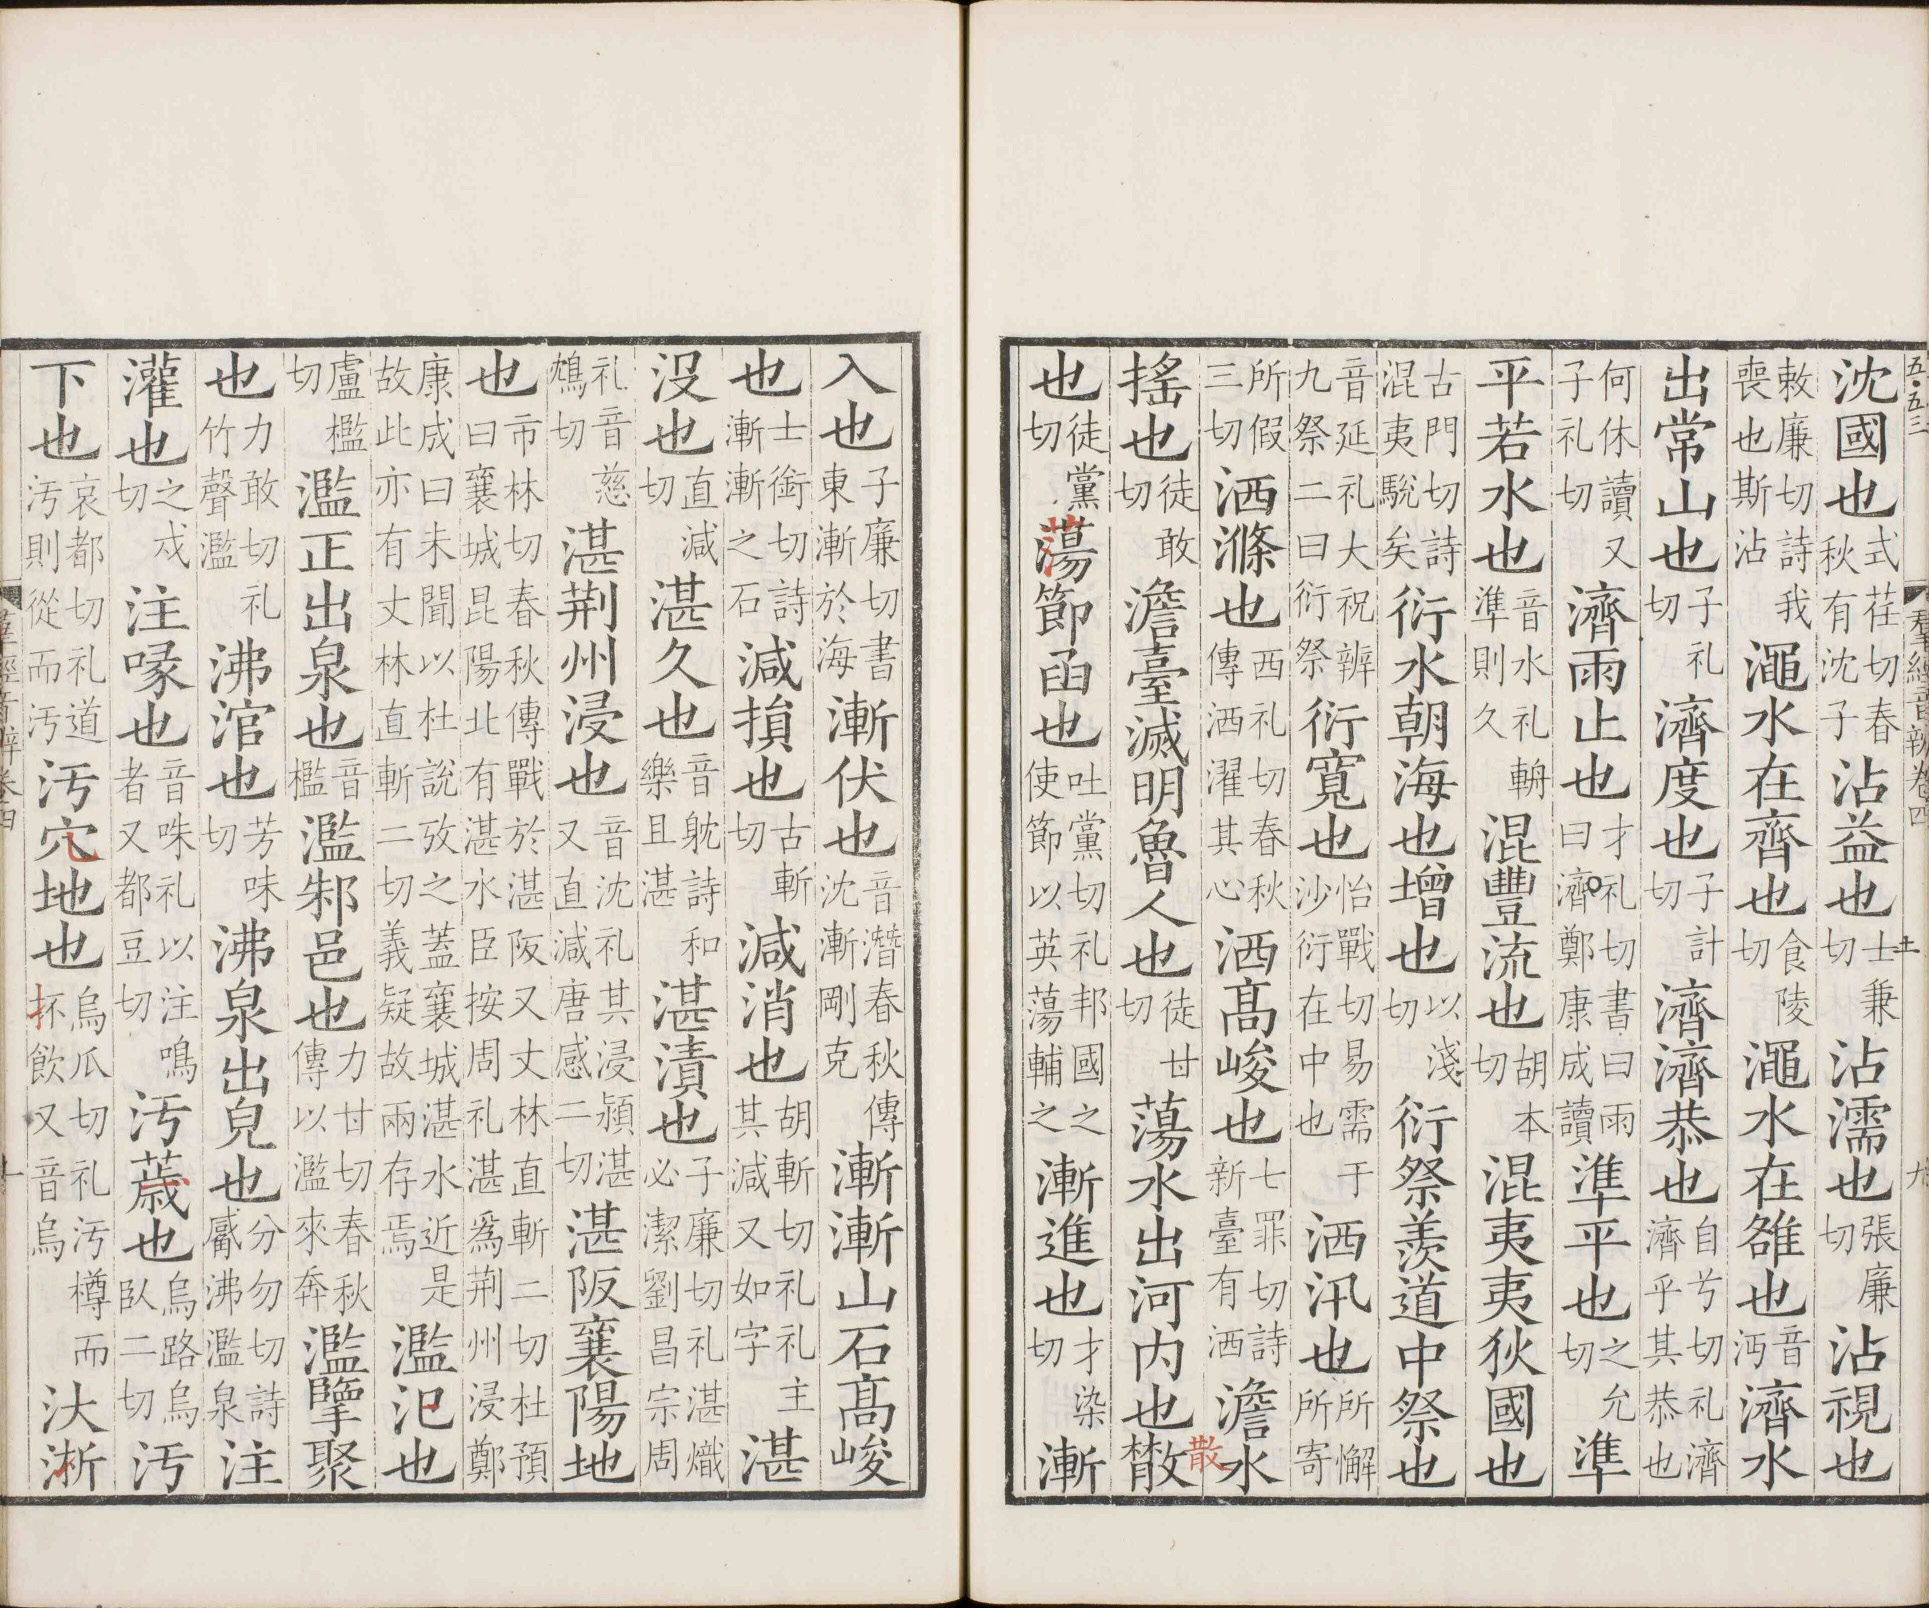 五·五三 群經音辨卷四 九
沈國也式荏切春秋有沈子沾益也士兼切沾濡也張廉切沾視也
敕廉切詩我喪也斯沾澠水在齊也食陵切澠水在雒也音沔濟水
出常山也子礼切濟度也子計切濟濟恭也自兮切礼濟濟乎其恭也
何休讀又子礼切濟雨止也才礼切書曰雨曰濟鄭康成讀準平也之允切準
平若水也音水礼輈準則久混豐流也胡本切混夷夷狄國也
古門切詩混夷駾矣衍水朝海也增也以淺切衍祭羨道中祭也
音延礼大祝辨九祭二曰衍祭衍寬也怡戰切易需于沙衍在中也洒汛也所懈所寄
所假三切洒滌也西礼切春秋傳洒濯其心洒高峻也七罪切詩新臺有洒澹水
搖也徒敢切澹臺滅明魯人也徒甘切蕩水出河内也㪚
散
也徒黨切蕩節函也吐黨切礼邦國之使節以英蕩輔之漸進也才染切漸
入也子廉切書東漸於海漸伏也音潛春秋傳沈漸剛克漸漸山石高峻
也士銜切詩漸漸之石減損也古斬切減消也胡斬切礼礼主其減又如字湛
没也直減切湛久也音躭詩和樂且湛湛漬也子廉切礼湛熾必潔劉昌宗周
礼音慈鴆切湛荆州浸也音沈礼其浸潁湛又直減唐感二切湛阪襄陽地
也市林切春秋傳戰於湛阪又丈林直斬二切杜預曰襄城昆陽北有湛水臣按周礼湛爲荆州浸鄭
康成曰未聞以杜說攷之蓋襄城湛水近是故此亦有丈林直斬二切義疑故兩存焉濫氾也
盧檻切濫正出泉也音檻濫邾邑也力甘切春秋傳以濫來奔濫孯聚
也力敢切礼竹聲濫沸涫也芳味切沸泉出皃也分勿切詩觱沸濫泉注
灌也之戍切注喙也音咮礼以注鳴者又都豆切汚薉也烏路烏臥二切汚
下也哀都切礼道汚則從而汚汚穴地也烏瓜切礼汚樽而抔飲又音烏汏淅
群經音辨卷四 十